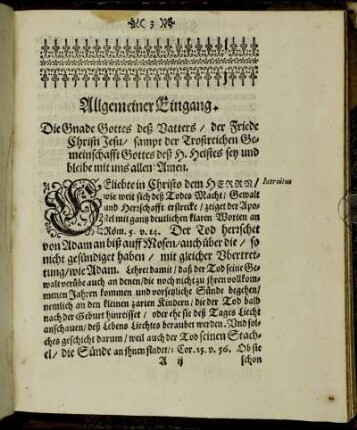 3
Allgemeiner Eingang.
Die Gnade Gottes deß Vatters / der Friede
Christi Jesu / sampt der Trostreichen Ge-
meinschafft Gottes deß H. Heistes sey und
bleibe mit uns allen Amen.
GEliebte in Christo dem HERRN /
Introitus
wie weit sich deß Todes Macht / Gewalt
und Herrschafft erstreckt / zeiget der Apo-
stel mit gantz deutlichen klaren Worten an
Röm. 5. v. 14. Der Tod herrschet
von Adam an biß auff Mosen / auch über die / so
nicht gesündiget haben / mit gleicher Vbertret-
tung / wie Adam. Lehret damit / daß der Tod seine Ge-
walt verübe auch an denen / die noch nicht zu ihren vollkom-
menen Jahren kommen und vorsetzliche Sünde begehen /
nemlich an den kleinen zarten Kindern / die der Tod bald
nach der Geburt hinreisset / oder ehe sie deß Tages Liecht
anschauen / deß Lebens Liechtes beraubet werden. Und sol-
ches geschicht darum / weil auch der Tod seinen Stach-
el / die Sünde an ihnen findet / 1 Cor. 15. v. 56. Ob sie
A ij
schon